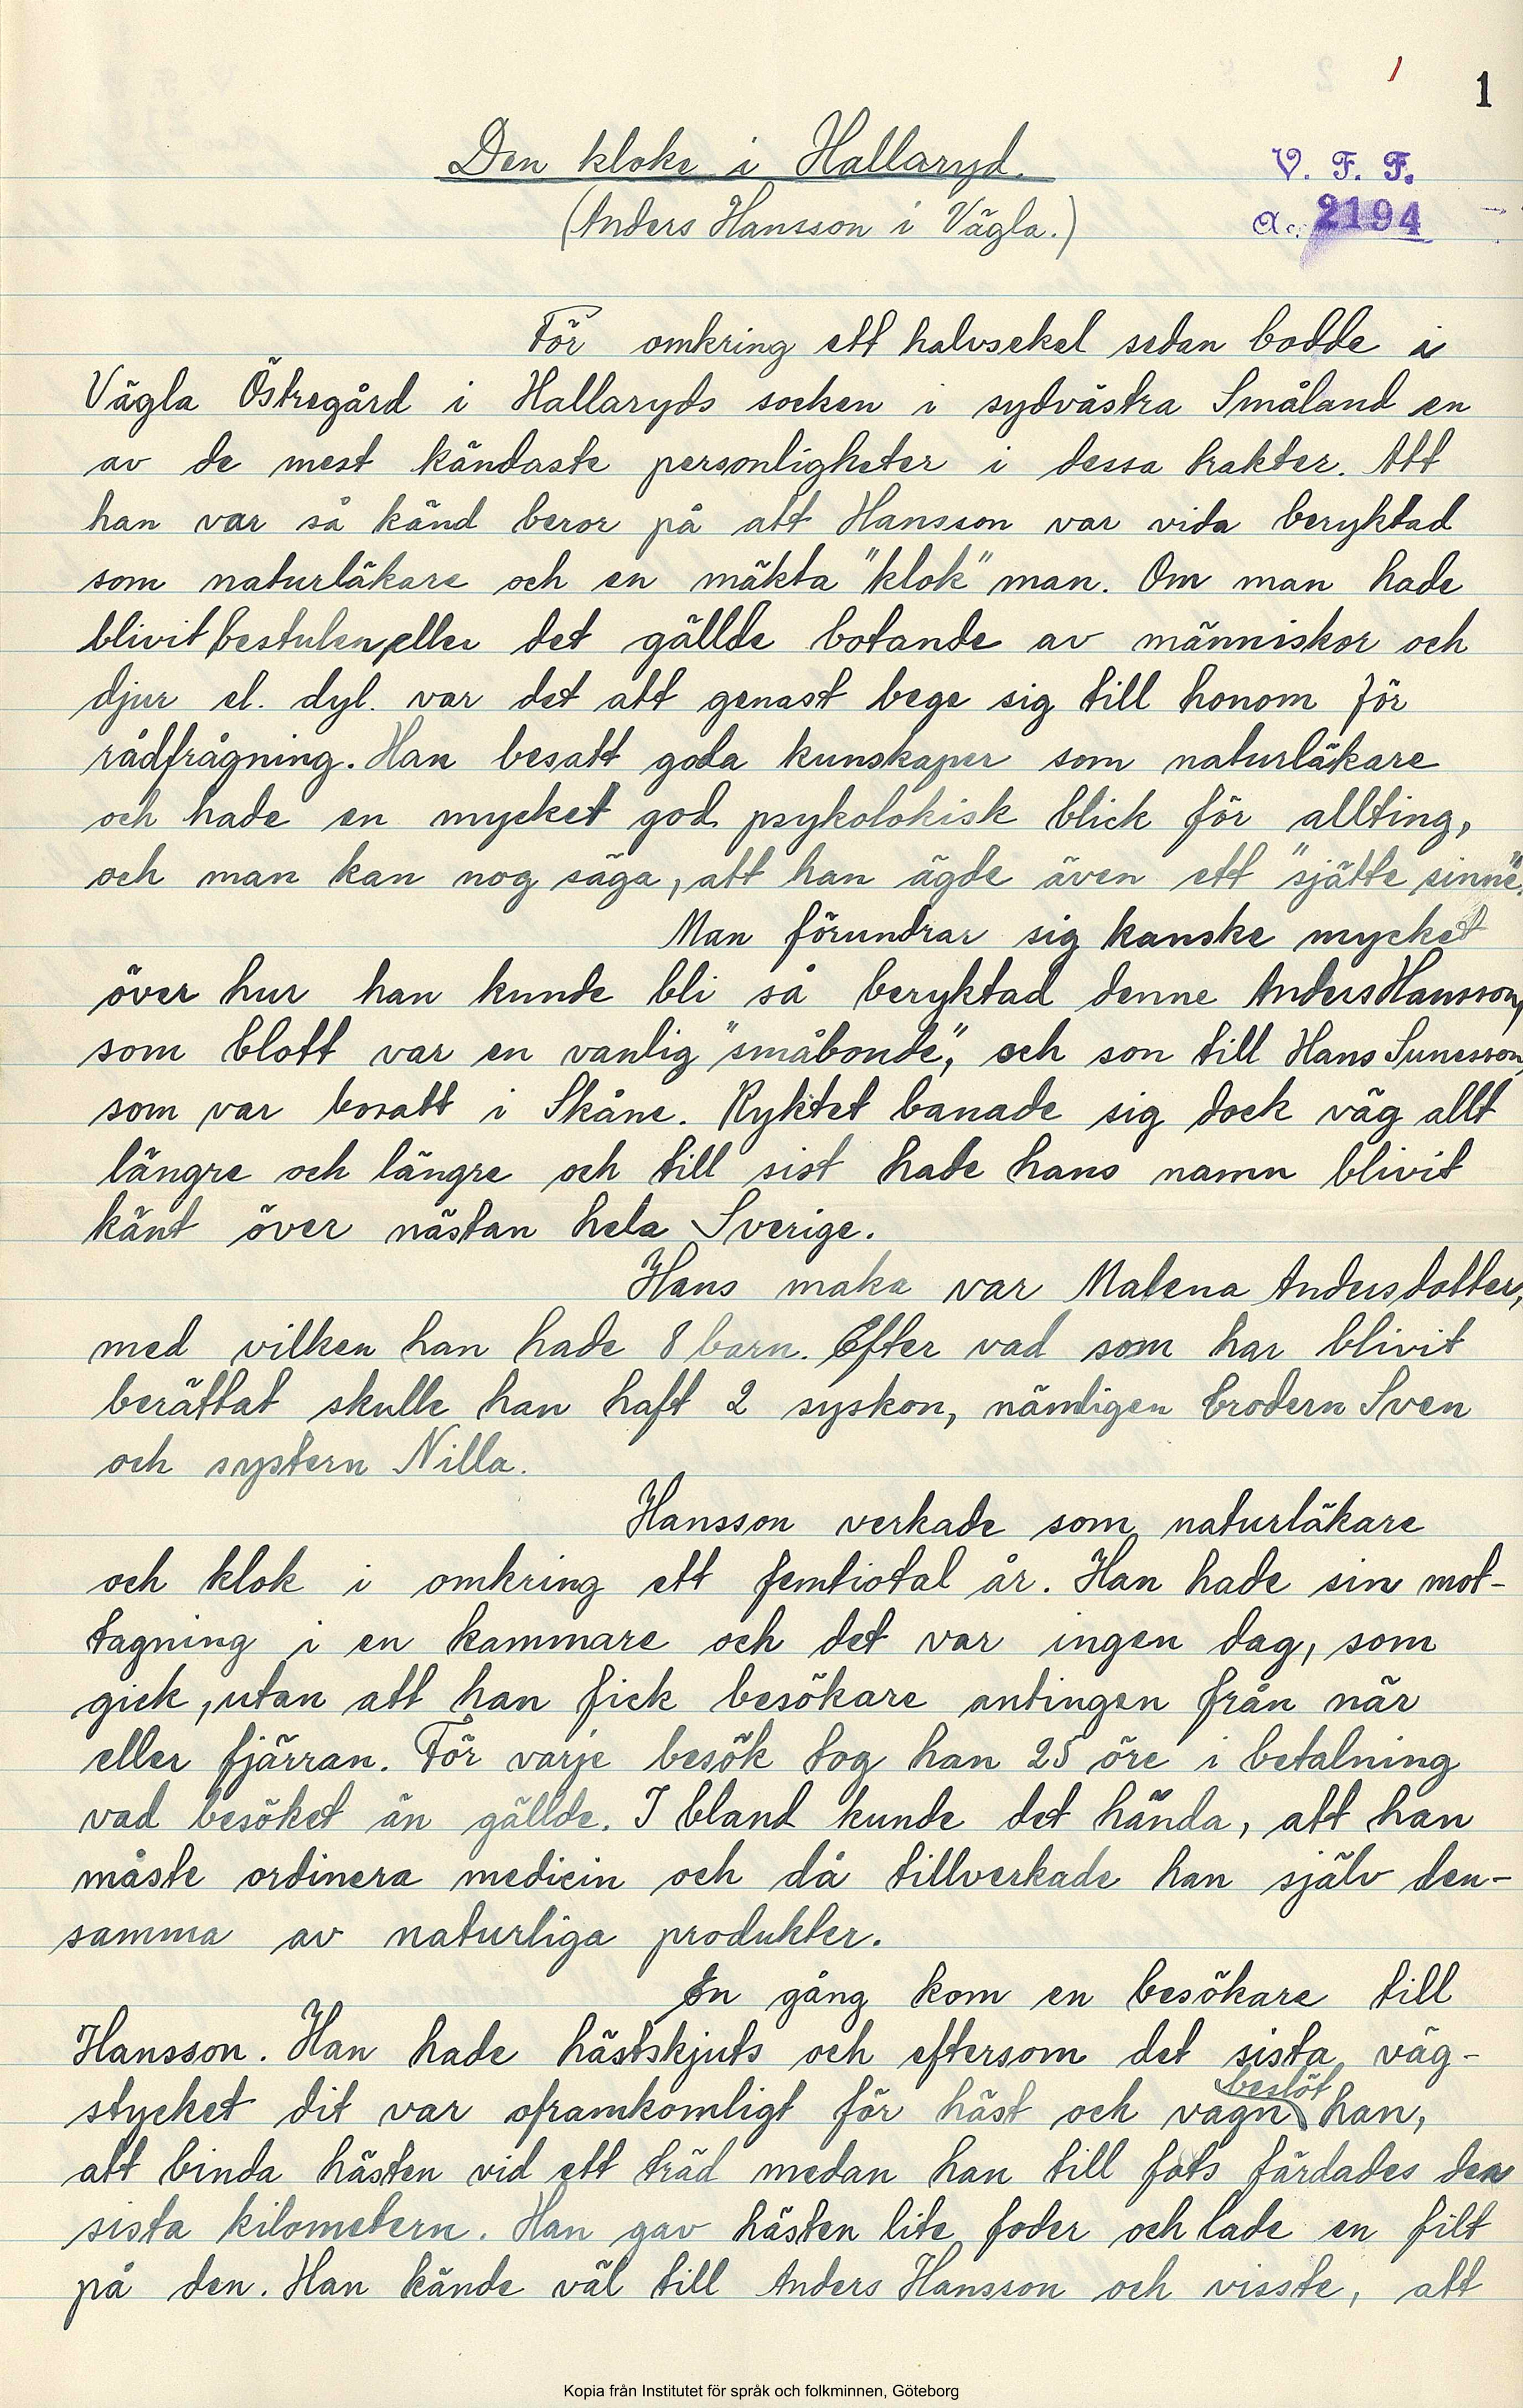 1
1
Den kloke i Hallaryd.
V. F. F.
(Anders Hansson i Vägla.)
a.: 2194
För omkring ett halvsekel sedan bodde i
Vägla Östregård i Hallaryds socken i sydvästra Småland en
av de mest kändaste personligheter i dessa trakter. Att
han var så känd beror på att Hansson var vida beryktad
som naturläkare och en mäkta "klok" man. Om man hade
blivit bestulen, eller det gällde botande av människor och
djur el. dyl. var det att genast bege sig till honom för
rådfrågning. Han besatt goda kunskaper som naturläkare
och hade en mycket god psykolokisk blick för allting,
och man kan nog säga, att han ägde även ett "sjätte sinne".
Man förundrar sig kanske mycket
över hur han kunde bli så beryktad denne Anders Hansson,
som blott var en vanlig "småbonde", och son till Hans Sunesson,
som var bosatt i Skåne. Ryktet banade sig dock väg allt
längre och längre och till sist hade hans namn blivit
känt över nästan hela Sverige.
Hans maka var Matena Andersdotter,
med vilken han hade 8 barn. Efter vad som har blivit
berättat skulle han haft 2 syskon, nämligen brodern Sven
och systern Nilla.
Hansson verkade som naturläkare
och klok i omkring ett femtiotal år. Han hade sin mot-
tagning i en kammare och det var ingen dag, som
gick, utan att han fick besökare antingen från när
eller fjärran. För varje besök tog han 25 öre i betalning
vad besöket än gällde. I bland kunde det hända, att han
måste ordinera medicin och då tillverkade han själv den-
samma av naturliga produkter.
En gång kom en besökare till
Hansson. Han hade hästskjuts och eftersom det sista väg-
stycket dit var oframkomligt för häst och vagn beslöt han,
att binda hästen vid ett träd medan han till fots färdades den
sista kilometern. Han gav hästen lite foder och lade en filt
på den. Han kände väl till Anders Hansson och visste, att
Kopia från Institutet för språk och folkminnen, Göteborg